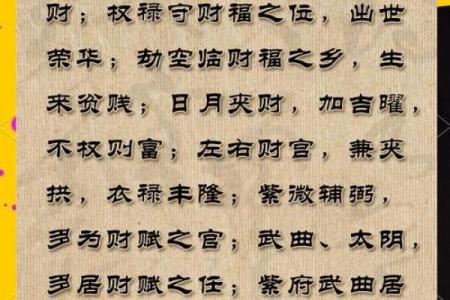 财；权禄守财福之位，出世
荣华；劫空临财福之乡，生
来贫贱；日月夹财，加吉曜，
不权则富；左右财宫，兼夹
拱，衣禄丰隆；紫微辅弼，
多为财赋之官；武曲、太阴，
多居财赋之任；紫府武曲居